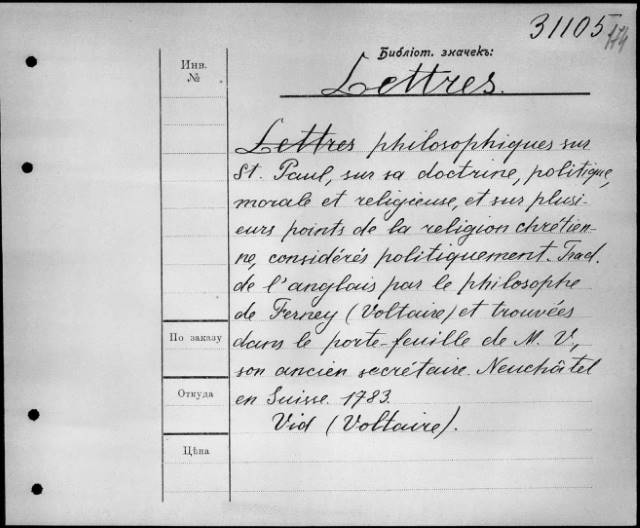 31105
Библіот. значекъ:
Lettres.
Инв.
№
Lettres philosophiques sur
St. Paul, sur sa doctrine, politique,
morale et religieuse, et sur plusi-
eurs points de la religion chrétien-
ne, considérés politiquement. Trad.
de l'anglais par le philosophe
de Ferney (Voltaire) et trouvées
dans le porte-feuille de M. V.,
son ancien secrétaire. Neuchâtel
en Suisse. 1783.
Vid (Voltaire).
По заказу
Откуда
Цѣна